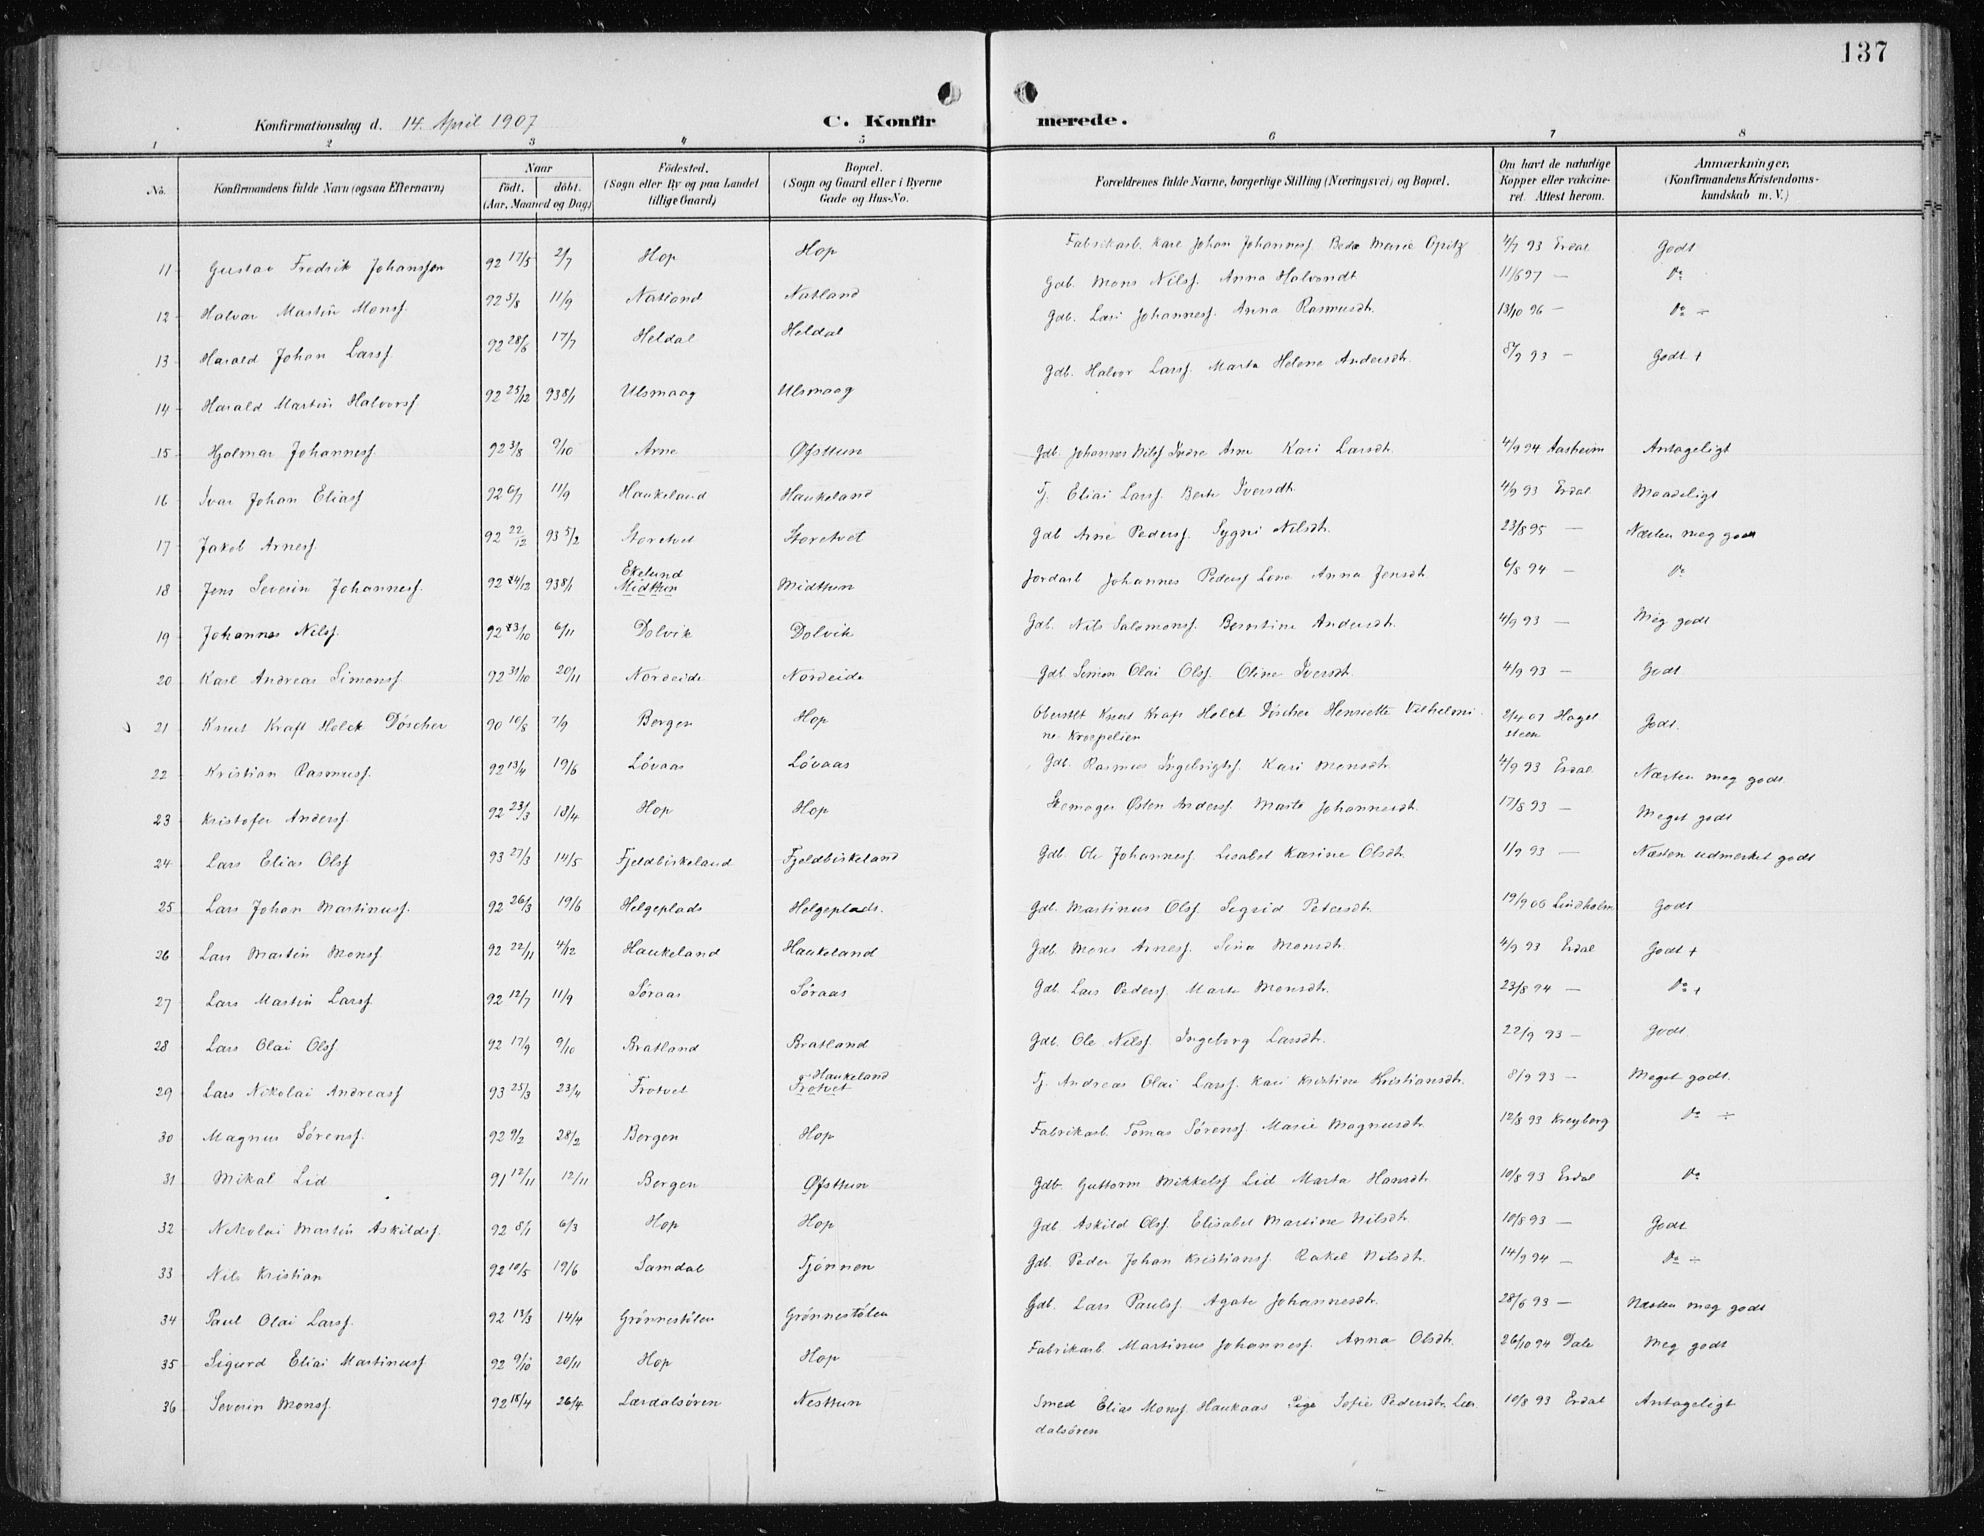 137
Konfirmationsdag d. 14. April 1907
C. Konfirmerede.
1 2 3 4 5 6 7 8
No. Konfirmandens fulde Navn (ogsaa Efternavn) Naar født. døbt. (Aar, Maaned og Dag) Fødested. (Sogn eller By og paa Landet tillige Gaard) Bopæl. (Sogn og Gaard eller i Byerne Gade og Hus-No. Forældrenes fulde Navne, borgerlige Stilling (Næringsvei) og Bopæl. Om havt de naturlige Kopper eller vakcineret. Attest herom. Anmærkninger. (Konfirmandens Kristendomskundskab m. V.)
11 Gustav Fredrik Johanssen 92 17/5 2/7 Hop Hop Fabrikarb. Karl Johan Johannesf. Beda Marie Opitz 4/7 93 Erdal Godt
12 Halvar Martin Monsf. 92 5/8 11/9 Natland Natland Gdb. Mons Nilsf. Anna Halvorsdt 11/6 97 — Do
13 Harald Johan Larsf. 92 28/6 17/7 Heldal Heldal Gdb. Lars Johannesf. Anna Rasmusdt. 13/10 96 — Do ÷
14 Harald Martin Halvorsf 92 25/12 93 8/1 Ulsmaag Ulsmaag Gdb. Halvor Larsf. Marta Helene Andersdt. 8/9 93 — Godt +
15 Hjalmar Johannesf 92 3/8 9/10 Arne Øfsttun Gdb. Johannes Nilsf Indre Arne Kari Larsdt. 4/9 94 Aasheim Antageligt
16 Ivar Johan Eliasf 92 6/7 11/9 Haukeland Haukeland Tj. Elias Larsf. Berte Iversdt. 4/9 93 Erdal Maadeligt
17 Jakob Arnesf. 92 22/12 93 5/2 Storetvet Storetvet Gdb Arne Pedersf. Sygni Nilsdt. 23/8 95 — Næsten meg godt
18 Jens Severin Johannesf. 92 24/12 93 8/1 Ekelund Midttun Midttun Jordarb Johannes Pedersf Lone Anna Jensdt 6/8 94 — Do
19 Johannes Nilsf. 92 23/10 6/11 Dolvik Dolvik Gdb. Nils Salomonsf. Berntine Andersdt. 4/9 93 — Meg godt
20 Karl Andreas Simonsf. 92 31/10 20/11 Nordeide Nordeide Gdb. Simon Olai Olsf. Oline Iversdt. 4/9 93 — Godt
21 Knut Kraft Holck Döscher 90 10/8 7/9 Bergen Hop Oberstlt Knut Kraft Holck Döscher Henriette Vilhelmine Krospelien 2/4 07 Hagelsteen Godt.
22 Kristian Rasmusf. 92 13/4 19/6 Løvaas Løvaas Gdb. Rasmus Ingebrigtsf. Kari Monsdt. 4/9 93 Erdal Næsten meg godt
23 Kristofer Andersf 92 23/3 18/4 Hop Hop Skomager Østen Andersf. Marta Johannesdt. 17/8 93 — Meget godt
24 Lars Elias Olsf 93 27/3 14/5 Fjeldbirkeland Fjeldbirkeland Gdb. Ole Johannesf. Lisabet Karine Olsdt. 1/9 93 — Næsten udmerket godt
25 Lars Johan Martinusf. 92 26/3 19/6 Helgeplads Helgeplads. Gdb. Martinus Olsf. Sigrid Petersdt. 19/9 06 Lindholm Godt
26 Lars Martin Monsf 92 22/11 4/12 Haukeland Haukeland Gdb. Mons Arnesf. Sina Monsdt. 4/9 93 Erdal Godt +
27 Lars Martin Larsf 92 12/7 11/9 Søraas Søraas Gdb. Lars Pedersf. Marta Monsdt. 23/8 94 — Do +
28 Lars Olai Olsf. 92 17/9 9/10 Bratland Bratland Gdb. Ole Nilsf. Ingeborg Larsdt. 22/9 93 — Godt
29 Lars Nikolai Andreasf 93 25/3 23/4 Trotvet Haukeland Trotvet Tj. Andreas Olai Larsf. Kari Kristine Kristiansdt. 8/9 93 — Meget godt.
30 Magnus Sörensf. 92 9/2 28/2 Bergen Hop Fabrikarb. Tomas Sörensf. Marie Magnusdt. 12/8 93 Kreyberg Do ÷
31 Mikal Lid 91 12/11 12/11 Bergen Øfsttun Gdb. Guttorm Mikkelsf Lid Marta Hansdt. 10/8 93 Erdal Do
32 Nikolai Martin Askildsf. 92 8/1 6/3 Hop Hop Gdb. Askild Olsf. Elisabet Martine Nilsdt. 10/8 93 — Godt
33 Nils Kristian 92 10/5 19/6 Samdal Tjønnen Gdb. Peder Johan Kristiansf. Rakel Nilsdt. 14/9 94 — Do ÷
34 Paul Olai Larsf. 92 13/3 14/4 Grønnestølen Grønnestølen Gdb. Lars Paulsf. Agate Johannesdt. 28/6 93 — Næsten meg godt
35 Sigurd Elias Martinusf. 92 9/10 20/11 Hop Hop Fabrikarb. Martinus Johannesf. Anna Olsdt. 26/10 94 Dale Meg godt
36 Severin Monsf. 92 18/4 26/4 Lærdalsören Nesttun Smed Elias Monsf Haukaas Pige Sofie Pedersdt. Lærdalsören 10/8 93 Erdal Antageligt